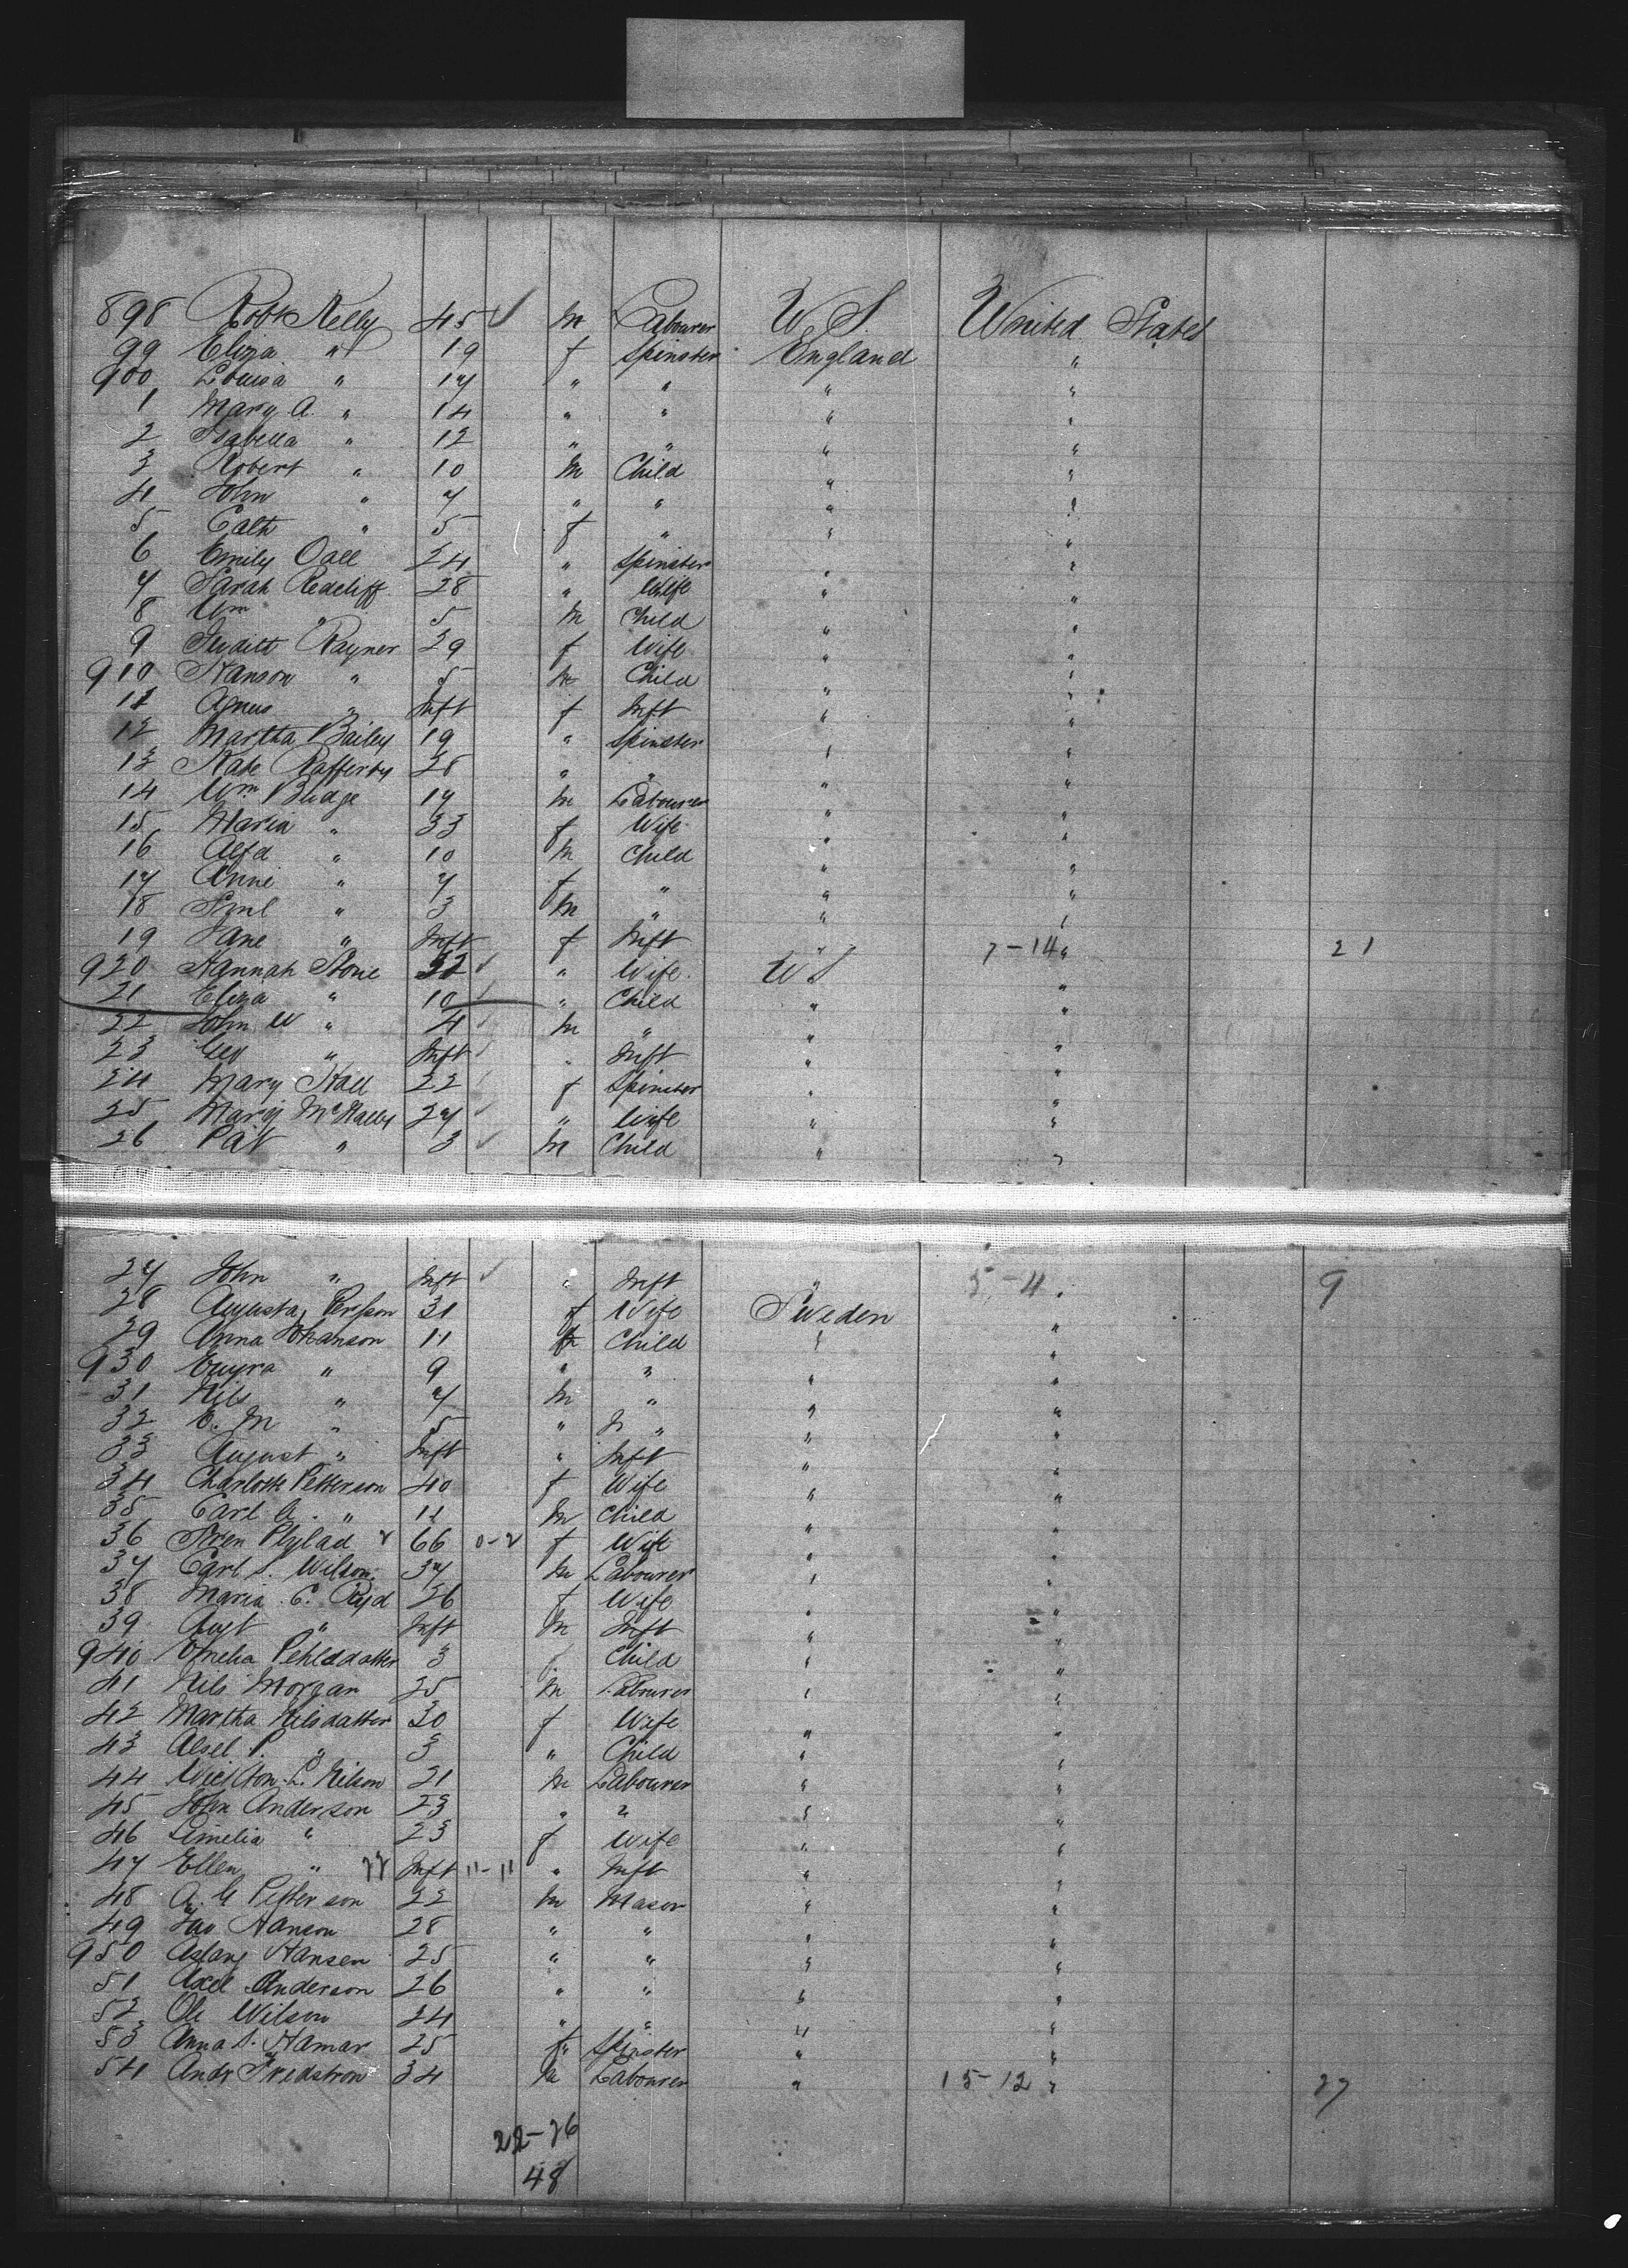 898 Robt Kelly 45 ✓ M Labourer U.S. United States
99 Eliza " 19 f Spinster England "
900 Louisa " 17 " " " "
1 Mary A. " 14 " " " "
2 Isabella " 12 " " " "
3 Robert " 10 M Child " "
4 John " 7 " " " "
5 Cath " 5 f " " "
6 Emily Oall 24 " Spinster " "
7 Sarah Redcliff 28 " Wife " "
8 Wm " 5 M Child " "
9 Rayner 29 f Wife " "
910 Hanson " 5 M Child " "
11 Agnes " Inft f Inft " "
12 Martha Bailey 19 " Spinster " "
13 Kate Rafferty 28 " " " "
14 Wm Budge 17 M Labourer " "
15 Maria " 33 f Wife " "
16 Alfd " 10 M Child " "
17 Anni " 7 f " " "
18 Saml " 3 M " " "
19 Jane " Inft f Inft " 7-14 " 21
920 Hannah Stone 32 ✓ " Wife U S "
21 Eliza " 10 ✓ " Child " "
22 John W " 4 ✓ M " " "
23 Geo " Inft ✓ " Inft " "
24 Mary Hall 22 ✓ f Spinster " "
25 Mary McNally 27 ✓ " Wife " "
26 Pat " 3 ✓ M Child " "
27 John " Inft ✓ " Inft " 5-4 " 9
28 Augusta Persson 31 f Wife Sweden "
29 Anna Johanson 11 f Child " "
930 " 9 " " " "
31 Nils " 7 M " " "
32 E. M " 5 " " " "
33 August " Inft " Inft " "
34 Charlotte Petterson 40 f Wife " "
35 Carl A. " 11 M Child " "
36 Plylad 66 0-2 f Wife " "
37 Carl S. Wilson 37 M Labourer " "
38 Maria C. Ryd 26 f Wife " "
39 Aust " Inft M Inft " "
940 3 f Child " "
41 Nils Morgan 25 M Labourer " "
42 Martha Nilsdatter 30 f Wife " "
43 P. " 3 " Child " "
44 L. Nilson 21 M Labourer " "
45 John Anderson 23 " " " "
46 Emelia " 23 f Wife " "
47 Ellen " Inft 11-11 " Inft " "
48 A. G Petterson 22 M Mason " "
49 Hanson 28 " " " "
950 Aslang Hansen 25 " " " "
51 Axel Anderson 26 " " " "
52 Ole Wilson 24 " " " "
53 Anna S. Hamar 25 f Spinster " "
54 Andr Fredstrom 34 M Labourer " 15-12 " 27
22-26
48